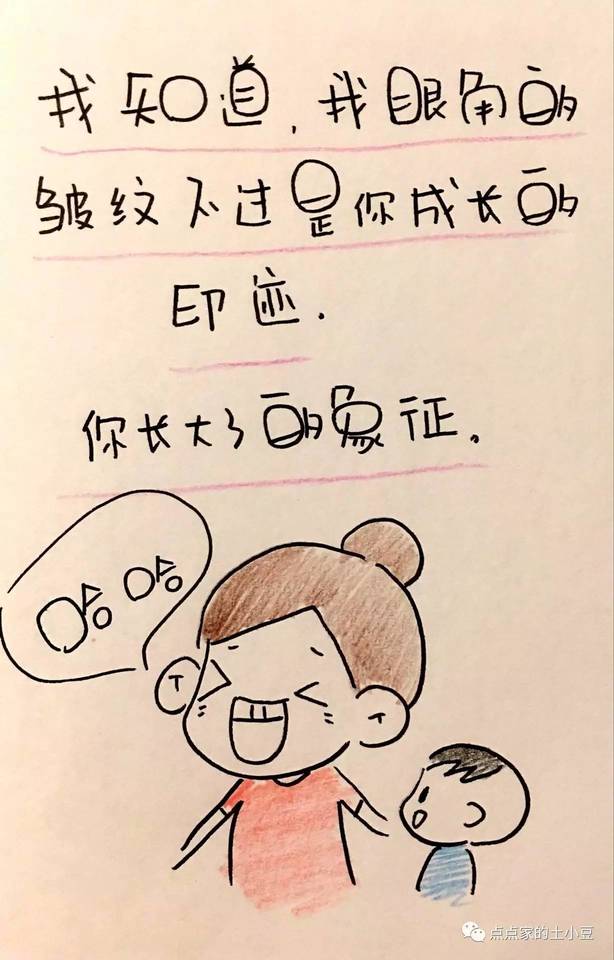 我知道,我眼角的
皱纹不过是你成长的
印迹.
你长大了的象征。
哈哈
点点家的土小豆